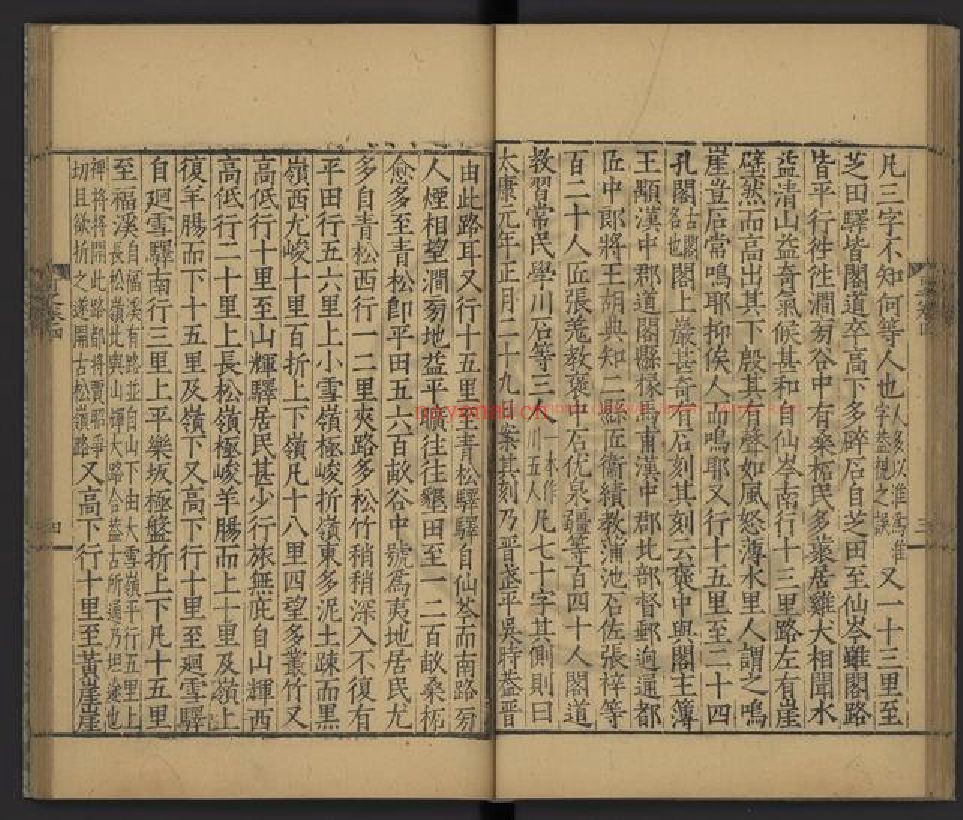 凡三字不知何等人也人多以淮爲准字蓋視之誤又一十三里至
芝田驛皆閣道卒高下多碎石自芝田至仙岑雖閣路
皆平行往往澗旁谷中有桑柘民多蘩居雞犬相聞水
益清山益奇氣候甚和自仙岑南行十三里路左有崖
壁然而高出其下殷其有聲如風怒薄水里人謂之鳴
崖豈石常鳴耶抑俟人而鳴耶又行十五里至二十四
孔閣古閣名也閣上巖甚奇有石刻其刻云褒中典閣主簿
王顒漢中郡道閣縣掾馬甫漢中郡北部督郵迥通都
匠中郎將王胡典知二縣匠衛績教蒲池石佐張梓等
百二十人匠張羌教褒中石佐泉疆等百四十人閣道
教習常民學川石等三人一本作川五人凡七十字其側則曰
太康元年正月二十九日案其刻乃晉武平吳時蓋晉
由此路耳又行十五里至青松驛驛自仙岑而南路旁
人煙相望澗旁地益平曠往往墾田至一二百畝桑柘
愈多至青松卽平田五六百畝谷中號爲夷地居民尤
多自青松西行一二里夾路多松竹稍稍深入不復有
平田行五六里上小雪嶺極峻折嶺東多泥土疎而黑
嶺西尤峻十里百折上下嶺凡十八里四望多叢竹又
高低行十里至山輝驛居民甚少行旅無庇自山輝西
高低行二十里上長松嶺極峻羊腸而上十里及嶺上
復羊腸而下十五里及嶺下又高下行十里至迴雪驛
自迴雪驛南行三里上平樂坂極盤折上下凡十五里
至福溪自福溪有路並自山下由大雪嶺平行五里上長松嶺此與山輝大路合蓋古所通乃坦遂也
裨將將開此路都將賈昭爭切且欲折之遂開古松嶺路又高下行十里至黃崖崖
文卷四
三
四